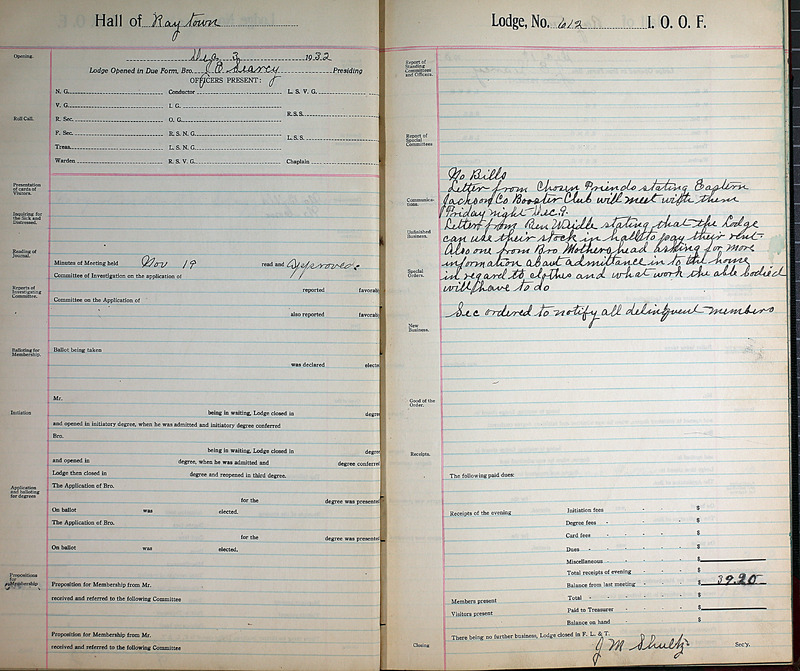 Hall of Raytown
Dec 3 1932
Opening.
Lodge Opened in Due Form, Bro. J. O. Searcy Presiding
OFFICERS PRESENT:
N. G. Conductor L. S. V. G.
V. G. I. G.
R.S.S.
Roll Call.
R. Sec. O. G.
F. Sec. R. S. N. G.
L.S.S.
Treas. L. S. N. G.
Warden R. S. V. G. Chaplain
Presentation
of cards of
Visitors.
Inquiring for
the Sick and
Distressed.
Reading of
Journal.
Minutes of Meeting held Nov 19 read and Approved.
Committee of Investigation on the application of
reported favorab
Reports of
Investigating
Committee.
Committee on the Application of
also reported favorab
Balloting for
Membership.
Ballot being taken
was declared electe
Mr.
being in waiting, Lodge closed in degre
Initiation
and opened in initiatory degree, when he was admitted and initiatory degree conferred
Bro.
being in waiting, Lodge closed in degre
and opened in degree, when he was admitted and degree conferre
Lodge then closed in degree and reopened in third degree.
Application
and balloting
for degrees
The Application of Bro.
for the degree was presente
On ballot was elected.
The Application of Bro.
for the degree was presente
On ballot was elected.
Propositions
for
Membership
Proposition for Membership from Mr.
received and referred to the following Committee
Proposition for Membership from Mr.
received and referred to the following Committee
Lodge, No. 612 I. O. O. F.
Report of
Standing
Committees
and Officers.
Report of
Special
Committees
No Bills
Letter from Chosen Friends stating Eastern
Communica-
tions.
Jackson Co Booster Club will meet with them
Friday night Dec. 9.
Unfinished
Business.
Letter from Ben Weidle stating that the Lodge
can use their stock in hall to pay their rent.
Also one from Bro Mothershead asking for more
information about admittance in to the home
Special
Orders.
in regard to clothes and what work the able bodied
will have to do
Sec ordered to notify all delinquent members
New
Business.
Good of the
Order.
Receipts.
The following paid dues:
Receipts of the evening Initiation fees $
Degree fees $
Card fees $
Dues $
Miscellaneous $
Total receipts of evening $
Balance from last meeting $ 39.20
Members present Total $
Visitors present Paid to Treasurer $
Balance on hand $
There being no further business, Lodge closed in F. L. & T.
Closing J M Shultz Sec'y.